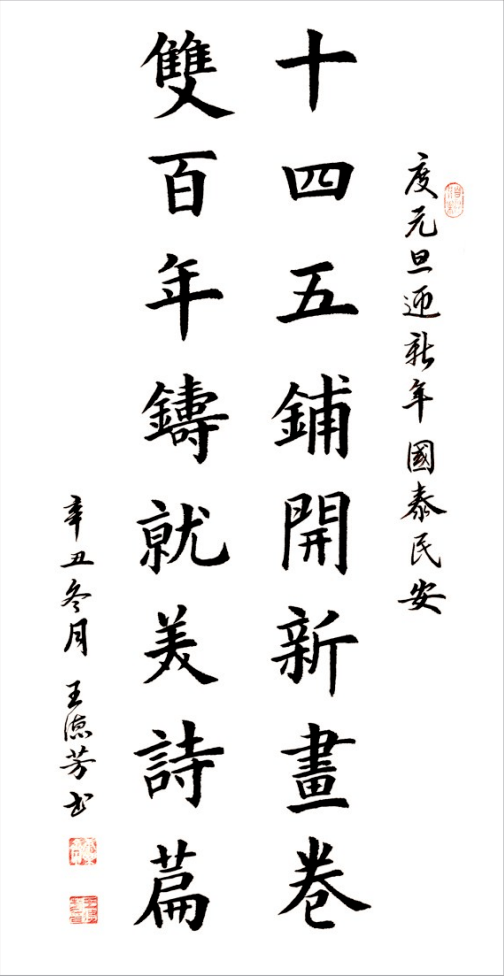 度元旦迎新年國泰民安
十四五鋪開新畫卷
雙百年鑄就美詩篇
辛丑冬月 王德芳书